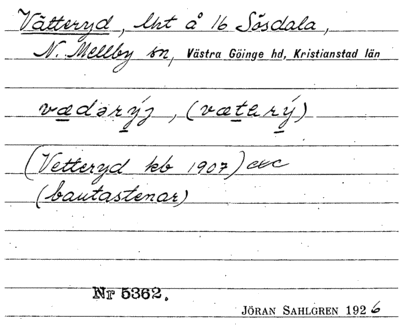 Vätteryd, lht å 16 Sösdala,
N. Mellby sn, Västra Göinge hd, Kristianstad län
vædərýj, (vætərý)
(Vetteryd kb 1907)
(bautastenar)
Nr 5362.
JÖRAN SAHLGREN 1926